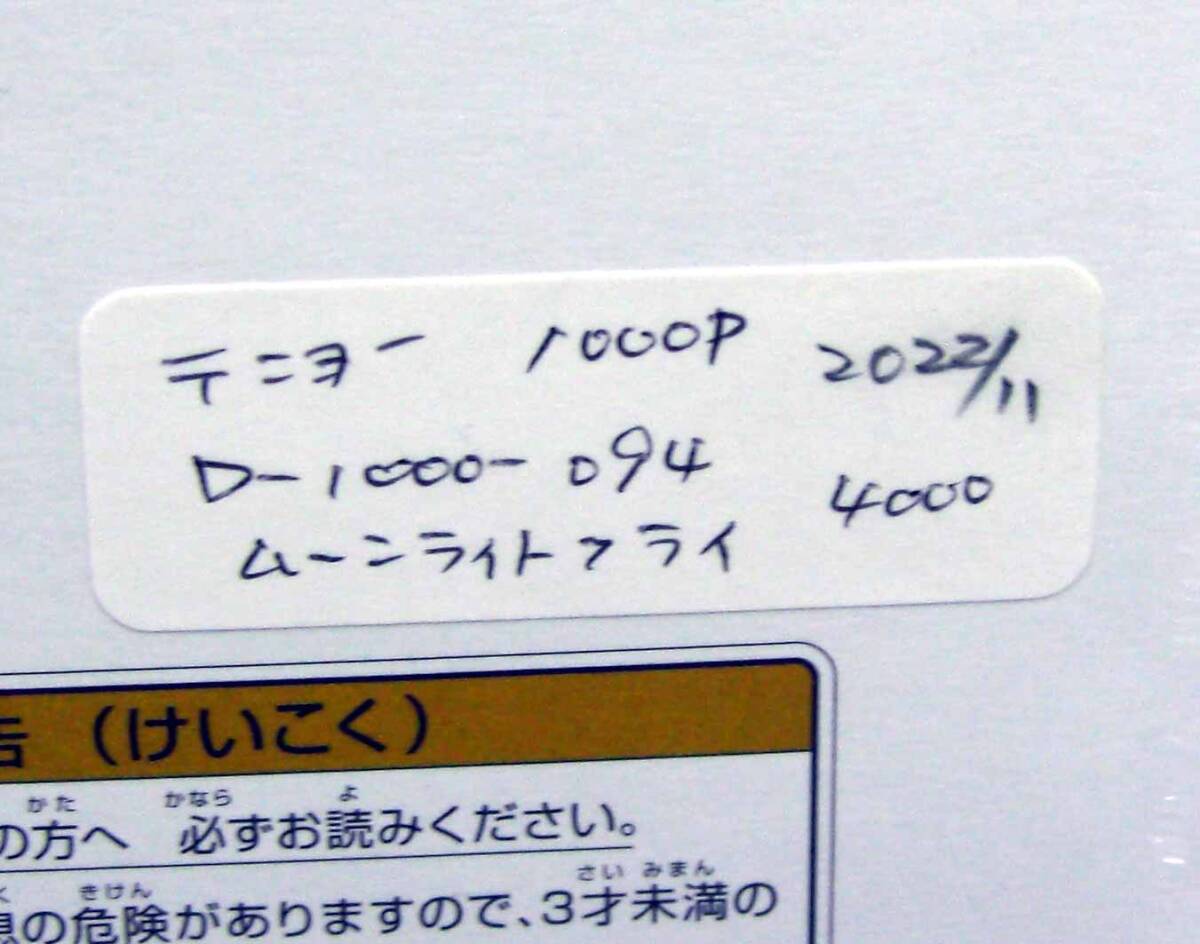 テニヨー 1000P 2022/11
D-1000-094 4000
ムーンライトフライ
告（けいこく）
かた かなら よ
の方へ 必ずお読みください。
きけん さい みまん
の危険がありますので、3才未満の